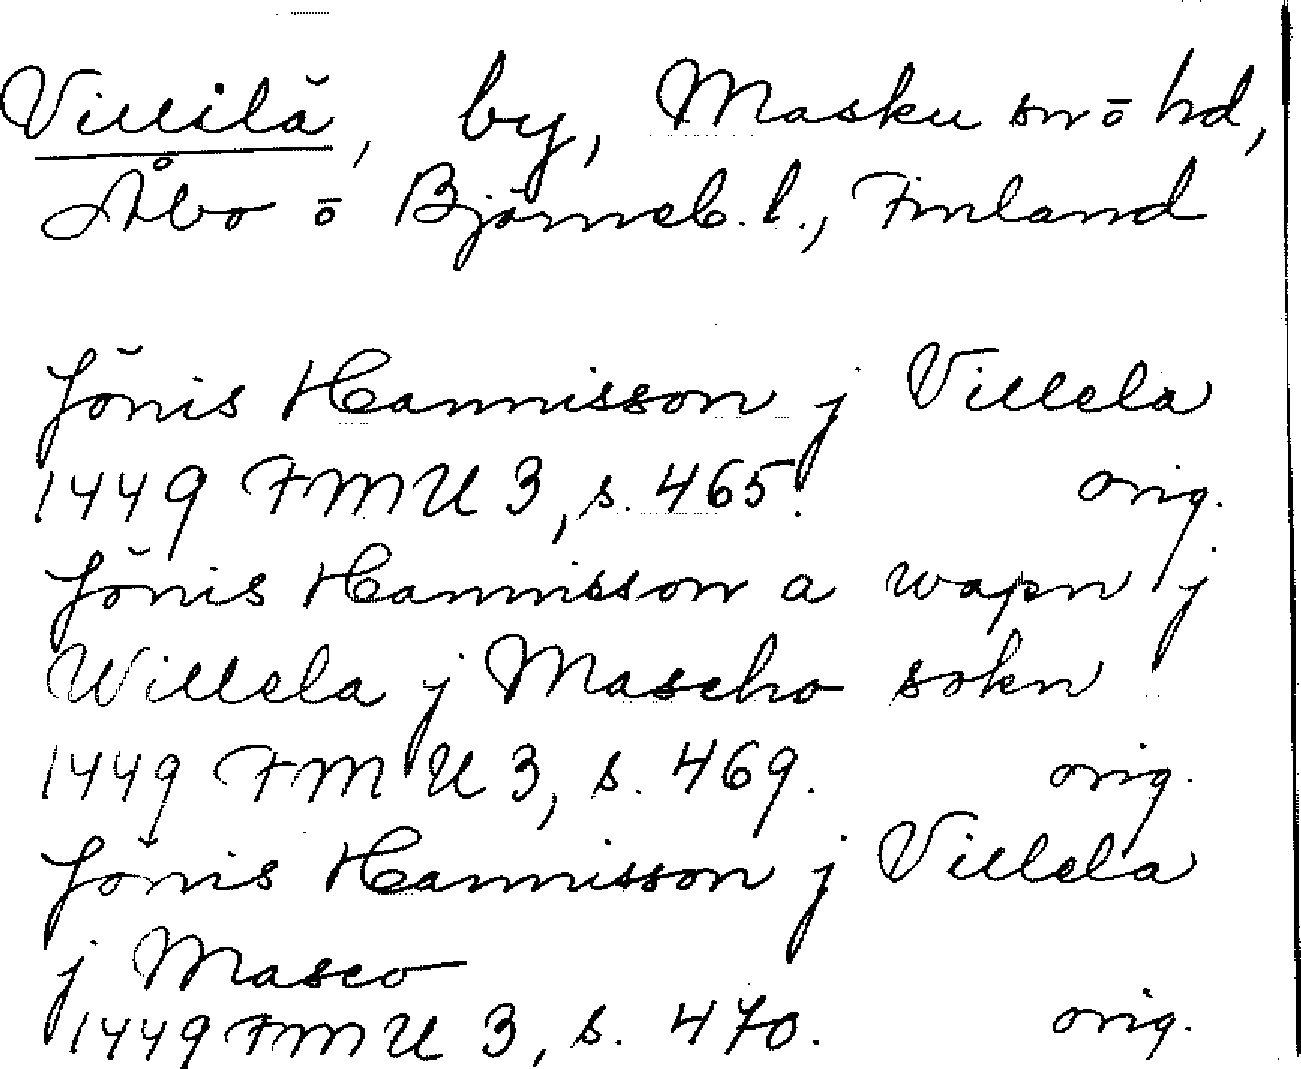 Villilä, by, Masku sn o hd,
Åbo o Björneb. l., Finland
Jönis Hannisson j Villela
1449 FMU 3, s. 465. orig.
Jönis Hannisson a wapn j
Willela j Mascho sokn
1449 FMU 3, s. 469. orig.
Jönis Hannisson j Villela
j Masco
1449 FMU 3, s. 470. orig.